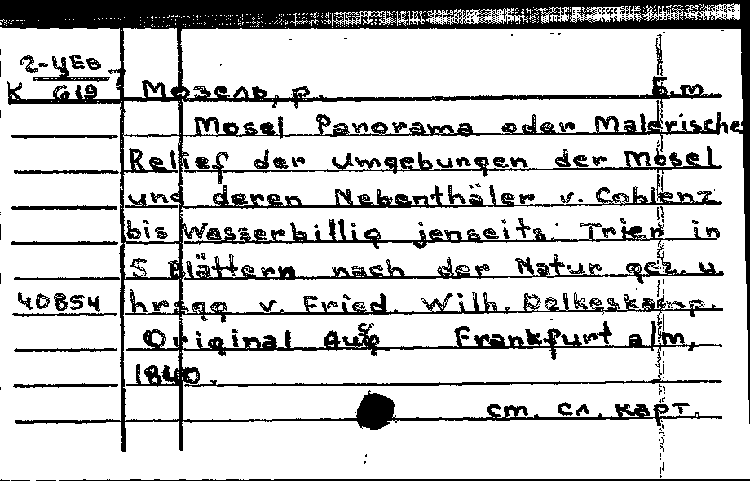 2-ЦЕВ
К 619 Мозель, р. Б.м.
Mosel Panorama oder Malerische
Relief der Umgebungen der Mosel
und deren Nebenthäler v. Coblenz
bis Wasserbillig jenseits Trier in
5 Blättern nach der Natur gez. u.
40854 hrsgg v. Fried. Wilh. Delkeskamp.
Original Aufg Frankfurt a/m,
1840.
см. сл. карт.